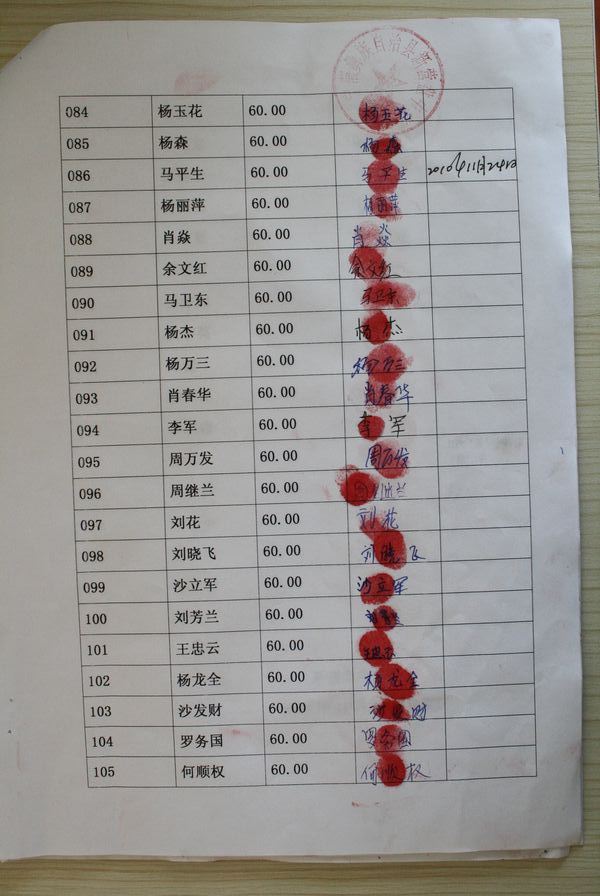 族自治县新营
084 杨玉花 60.00 杨玉花
085 杨森 60.00 杨森
086 马平生 60.00 马平生 2010年11月24日
087 杨丽萍 60.00 杨丽萍
088 肖焱 60.00 肖焱
089 余文红 60.00 余文红
090 马卫东 60.00 马卫东
091 杨杰 60.00 杨杰
092 杨万三 60.00 杨万三
093 肖春华 60.00 肖春华
094 李军 60.00 李军
095 周万发 60.00 周万发
096 周继兰 60.00 周继兰
097 刘花 60.00 刘花
098 刘晓飞 60.00 刘晓飞
099 沙立军 60.00 沙立军
100 刘芳兰 60.00
101 王忠云 60.00 王忠云
102 杨龙全 60.00 杨龙全
103 沙发财 60.00 沙发财
104 罗务国 60.00 罗务国
105 何顺权 60.00 何顺权